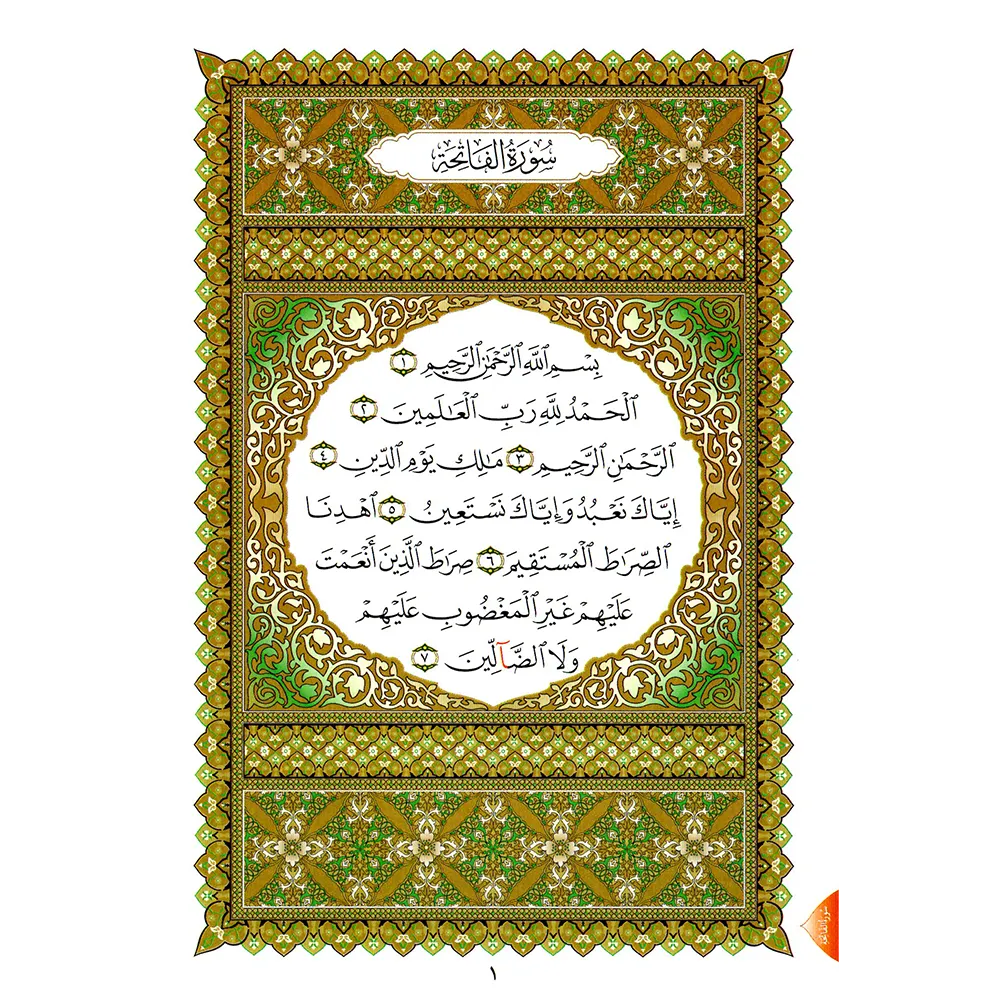 سُورَةُ الفَاتِحَةِ
بِسْمِ ٱللَّهِ ٱلرَّحْمَٰنِ ٱلرَّحِيمِ ١
ٱلْحَمْدُ لِلَّهِ رَبِّ ٱلْعَٰلَمِينَ ٢
ٱلرَّحْمَٰنِ ٱلرَّحِيمِ ٣ مَٰلِكِ يَوْمِ ٱلدِّينِ ٤
إِيَّاكَ نَعْبُدُ وَإِيَّاكَ نَسْتَعِينُ ٥ ٱهْدِنَا
ٱلصِّرَٰطَ ٱلْمُسْتَقِيمَ ٦ صِرَٰطَ ٱلَّذِينَ أَنْعَمْتَ
عَلَيْهِمْ غَيْرِ ٱلْمَغْضُوبِ عَلَيْهِمْ
وَلَا ٱلضَّآلِّينَ ٧
سُورَةُ الفَاتِحَةِ
١